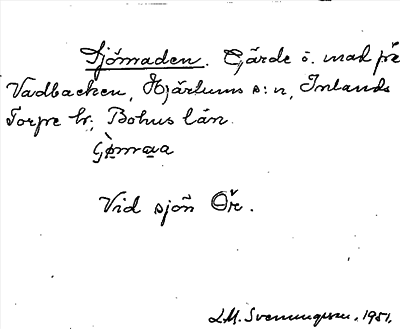 Sjömaden. Gärde o. mad på
Vadbacken, Hjärtums s:n, Inlands
Torpe hd, Bohus län.
Vid sjön Öre.
L.M. Svenungsson. 1951.